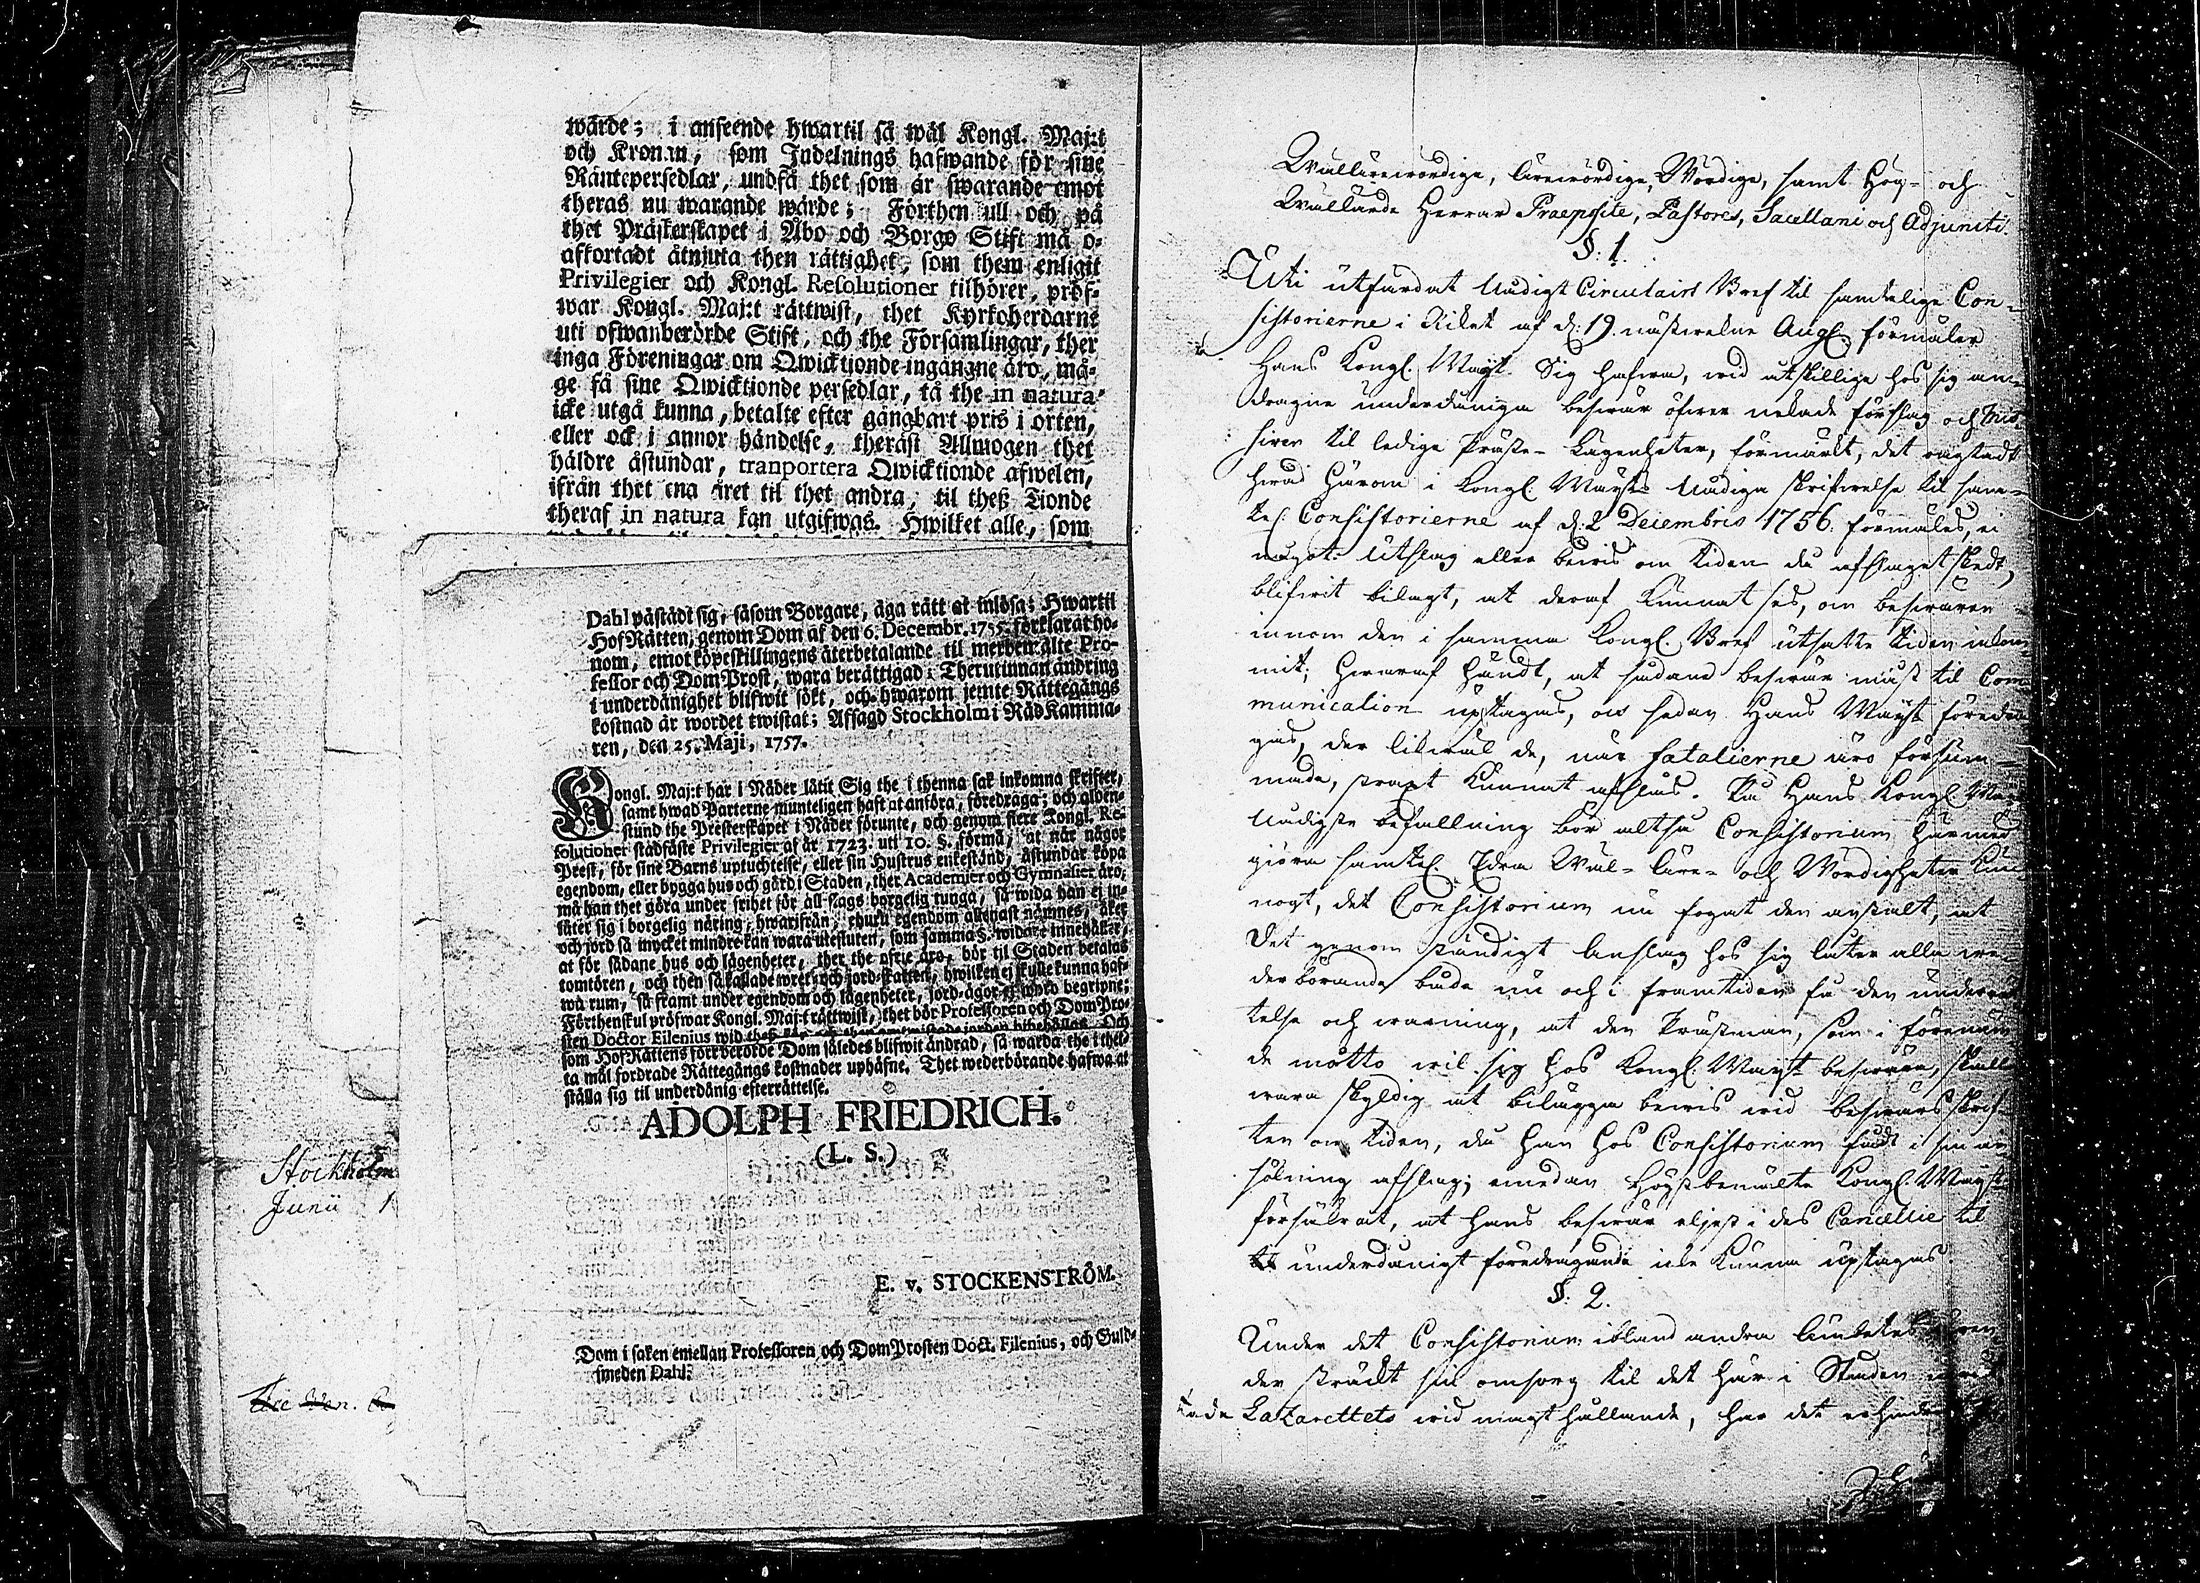 wärde; i anseende hwartil så wäl Kongl. Maj:t
och Kronan, som Indelnings hafwande för sine
Räntepersedlar, undfå thet som är swarande emot
theras nu warande wärde; Förthenskull och på
thet Prästerskapet i Åbo och Borgo Stift må o-
afkortadt åtnjuta then rättighet, som them enligit
Privilegier och Kongl. Resolutioner tilhörer, pröf-
war Kongl. Maj:t rättwist, thet Kyrkoherdarne
uti ofwanberörde Stift, och the Församlingar, ther
inga Föreningar om Qwicktionde ingångne äro, må-
ge få sine Qwicktionde persedlar, tå the in natura
icke utgå kunna, betalte efter gångbart pris i orten,
eller ock i annor händelse, theräst Allmogen thet
häldre åstundar, tranportera Qwicktionde afwelen,
ifrån thet ena året til thet andra, til theß Tionde
theraf in natura kan utgifwas. Hwilket alle, som
Dahl påstådt sig, såsom Borgare, äga rätt at inlösa; Hwartil
HofRätten, genom Dom af den 6. Decembr. 1755. förklarat ho-
nom, emot köpeskillingens återbetalande til merbemälte Pro-
fessor och DomProst, wara berättigad; Therutinnan ändring
i underdånighet blifwit sökt, och hwarom jemte Rättegångs
kostnad är wordet twistat; Afsagd Stockholm i RådKamma-
ren, den 25. Maji, 1757.
Kongl. Maj:t har i Nåder låtit Sig the i thenna sak inkomna skrifter,
samt hwad Parterne munteligen haft at anföra, föredraga; och alden-
stund the Presterskapet i Nåder förunte, och genom flere Kongl. Re-
solutioner stadfäste Privilegier af år 1723. uti 10. §. förmå, at när något
Prest, för sine Barns uptuchtelse, eller sin Hustrus enkestånd, åstundar köpa
egendom, eller bygga hus och gård i Staden, ther Academier och Gymnasier äro,
må han thet göra under frihet för all slags borgelig tunga, så wida han ej in-
låter sig i borgelig näring, hwarifrån, ehuru egendom allenast nämnes, åker
och jord så mycket mindre kan wara utesluten, som samma §. widare innehåller,
at för sådane hus och lägenheter, ther the ofrie äro, bör til Staden betalas
tomtören, och then så kallade wret- och jord-skatten, hwilken ej skulle kunna haf-
wa rum, så framt under egendom och lägenheter, jord-ägor ej woro begripne;
Förthenskul pröfwar Kongl. Maj:t rättwist, thet bör Professoren och DomPro-
sten Doctor Filenius wid theß köp och then omtwistade jorden bibehållas. Och
som HofRättens förrberörde Dom således blifwit ändrad, så warda the i thet-
ta mål fordrade Rättegångs kostnader uphäfne. Thet wederbörande hafwa at
ställa sig til underdånig efterrättelse.
ADOLPH FRIEDRICH.
(L. S.)
E. v. STOCKENSTRÖM.
Dom i saken emellan Professoren och DomProsten Doct. Filenius, och Guld-
smeden Dahl.
Stockholm
Junii 1
Wällärewördige, Lärewördige, Wördige, samt Hög- och
Wällärde Herrar Praepositi, Pastores, Sacellani och Adjuncti.
§. 1.
Uti utfärdat Nådigt Circulairt Bref til samtelige Con-
sistorierne i Riket af d: 19. nästwekne Aug. förmäler
Hans Kongl. Maj:t Sig hafwa, wid åtskillige hos sig an-
dragne underdåniga beswär öfwer nekade förslag och
til ledige Präste-Lägenheter, förmärkt, det oagtadt
hwad härom i Kongl. Maj:ts Nådiga skrifwelse til sam-
tel. Consistorierne af d: 2 Decembris 1756. förmäles, ei
något utslag eller bewis om tiden då afslaget skedt,
blifwit bilagt, at deraf kunnat ses, om beswären
innom den i samma Kongl. Bref utsatte tiden inkom-
mit; hwaraf händt, at sådane beswär måst til Com-
munication uptagas, och sedan Hans Maj:t föredra-
gas, der likwäl de, när fatalierne äro försum-
made, strax kunnat afslås. På Hans Kongl. Maj:ts
Nådigste befallning bör altså Consistorium härmed
giöra samtel. Edra Wäl- Läre- och Wördigheter kun-
nogt, det Consistorium nu fogat den anstalt, at
det genom ständigt anslag hos sig låter alla we-
derbörande både nu och i framtiden få den underrät-
telse och warning, at den Prästman, som i förenäm-
de måtto wil sig hos Kongl. Maj:t beswära, skall
wara skyldig at bilägga bewis wid beswärsskrif-
ten om tiden, då han hos Consistorium fådt i sin an-
sökning afslag; emedan Högstbemälte Kongl. Maj:t
försäkrat, at hans beswär eljest i des Cancellie til
underdånigt föredragande icke kunna uptagas.
§. 2.
Under det Consistorium ibland andra
der sträckt sin omsorg til det här i Staden
tade Lazarettets wid magt hållande, har det